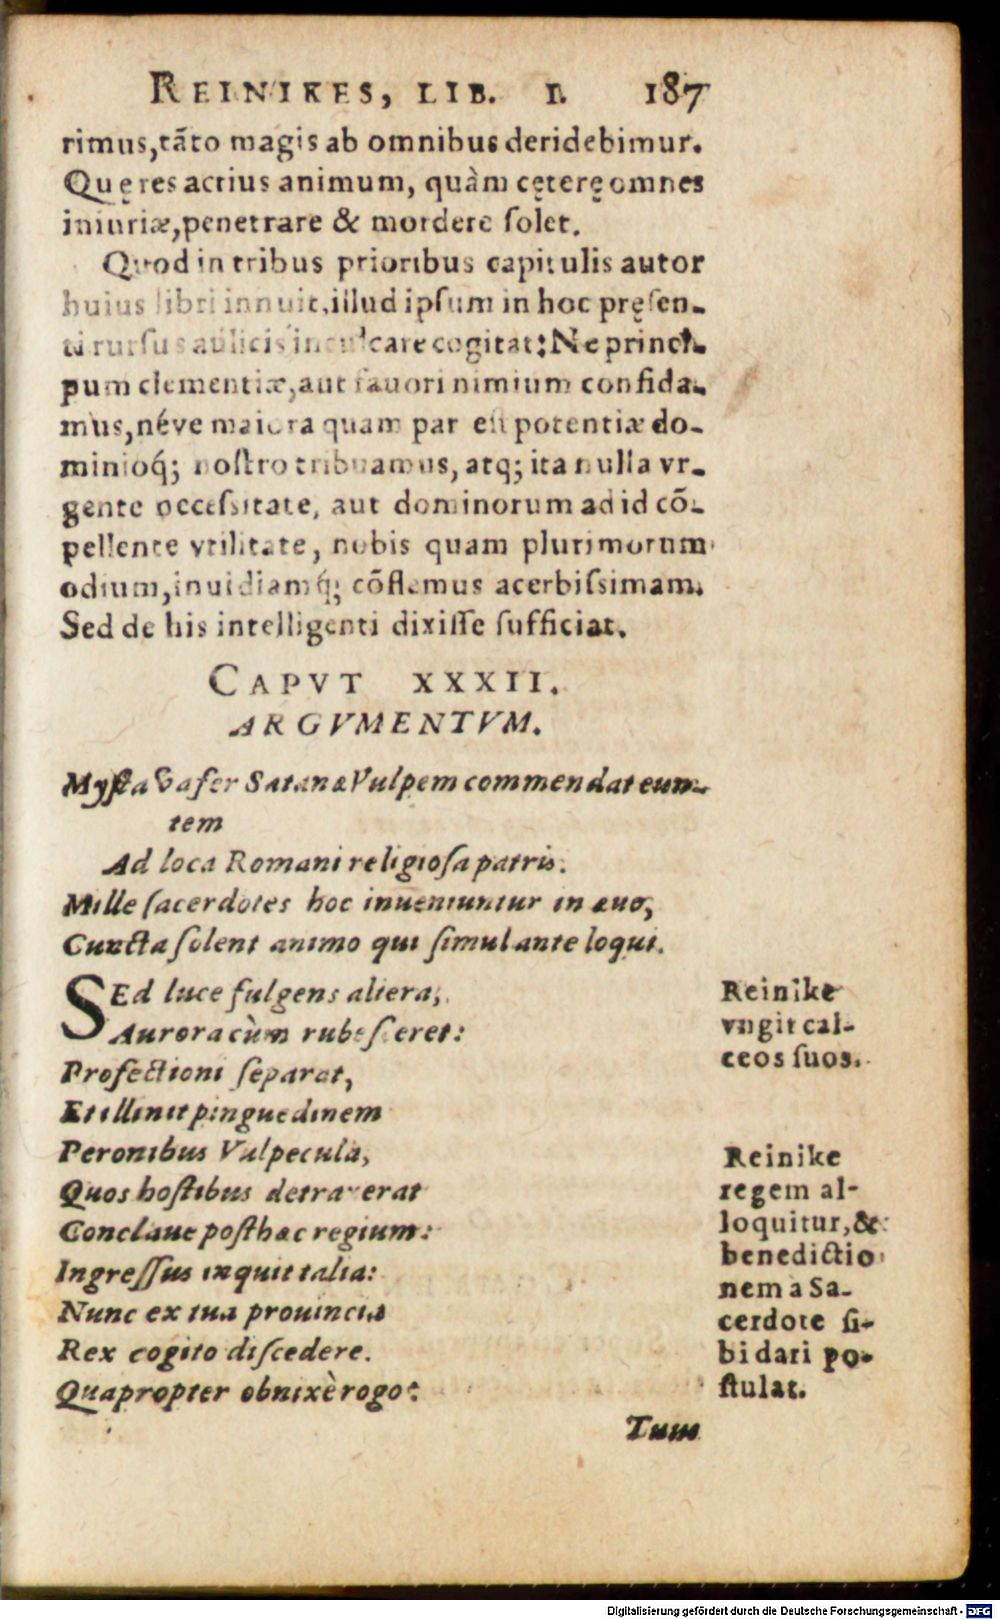 REINIKES, LIB. I. 187
rimus,tãto magis ab omnibus deridebimur.
Quę res acrius animum, quàm cęterę omnes
iniuriæ,penetrare & mordere ſolet.
Quod in tribus prioribus capitulis autor
huius libri innuit,illud ipſum in hoc pręſen-
ti rurſus aulicis inculcare cogitat: Ne princi-
pum clementiæ,aut fauori nimium confida-
mus,néve maiora quam par eſt potentiæ do-
minioq́; noſtro tribuamus, atq; ita nulla vr-
gente neceſsitate, aut dominorum ad id cõ-
pellente vtilitate, nobis quam plurimorum
odium,inuidiamq́; cõflemus acerbiſsimam.
Sed de his intelligenti dixiſſe ſufficiat.
CAPVT XXXII.
ARGVMENTVM.
Myſta vafer Satanæ Vulpem commendat eun-
tem
Ad loca Romani religioſa patris.
Mille ſacerdotes hoc inueniuntur in æuo,
Cuncta ſolent animo qui ſimulante loqui.
SEd luce fulgens altera,
Aurora cùm rubeſceret:
Profectioni ſe parat,
Et illinit pinguedinem
Peronibus Vulpecula,
Quos hoſtibus detraxerat
Conclaue poſthæc regium:
Ingreſſus inquit talia:
Nunc ex tua prouincia
Rex cogito diſcedere.
Quapropter obnixè rogo:
Tum
Reinike
vngit cal-
ceos ſuos.
Reinike
regem al-
loquitur,&
benedictio
nem a Sa-
cerdote ſi-
bi dari po-
ſtulat.
Digitalisierung gefördert durch die Deutsche Forschungsgemeinschaft - DFG